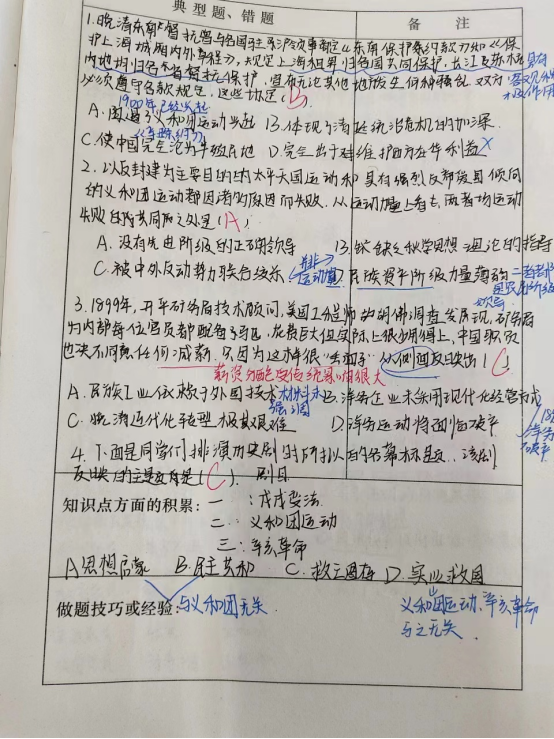 典型题、错题
备 注
1.晚清东南督抚曾与各国驻上海领事商定《东南保护条约款》和《保
护上海城厢内外章程》,规定上海租界归各国共同保护,长江及苏杭
内地均归各省督抚保护,
双方
必须遵守条款规定,这些协定(B
1900年已经兴起
A.
了义和团运动兴起 B.体现了清廷统治危机的加深
《辛丑条约》
C.使中国完全沦为半殖民地 D.完全出于维护西方在华利益X
2.以反封建为主要目的的太平天国运动和具有强烈反帝爱国倾向
的义和团运动都因
而失败,从运动
看,两者
运动
失败的共同原因之处是(A)
A.没有先进阶级的正确领导 B.
缺乏科学思想理论的指导
C.被中外反动势力联合绞杀 D.民族资产阶级力量薄弱
3.1899年,开平矿务局技术顾问,美国工程师
胡佛调查发现,矿务局
为内部每位官员都配备了马匹,花费巨大但实际上很少用得上,中国职员
也决不同意任何减薪,只因为这样很“丢面子”,从侧面反映出(C
A.民族工业依赖于外国技术 B.洋务企业未采用现代化经营方式
C.晚清近代化转型极其艰难 D.洋务运动将面临破产
4.下面是同学们排演历史剧时所拟的各幕标题,该剧
反映的主题应是(C). 剧目
知识点方面的积累:一:戊戌变法
二:义和团运动
三:辛亥革命
A思想启蒙 B.民主共和 C.救亡图存 D.实业救国
做题技巧或经验:与义和团无关
义和团运动、辛亥革命
与之无关.